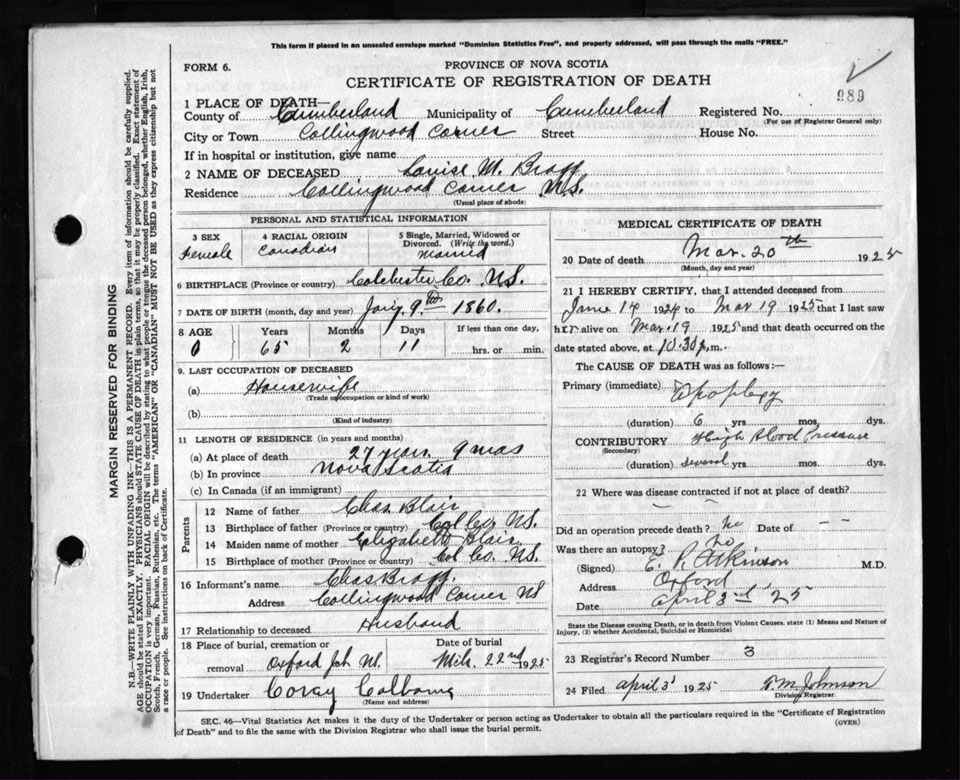 This form if placed in an unsealed envelope marked "Dominion Statistics Free", and properly addressed, will pass through the mails "FREE."
FORM 6.
PROVINCE OF NOVA SCOTIA
CERTIFICATE OF REGISTRATION OF DEATH
989
1 PLACE OF DEATH—
County of Cumberland Municipality of Cumberland Registered No.
(For use of Registrar General only)
City or Town Collingwood Corner Street House No.
If in hospital or institution, give name
2 NAME OF DECEASED Louise M. Bragg
Residence Collingwood Corner N.S.
(Usual place of abode)
PERSONAL AND STATISTICAL INFORMATION
3 SEX Female
4 RACIAL ORIGIN Canadian
5 Single, Married, Widowed or Divorced. (Write the word.) Married
6 BIRTHPLACE (Province or country) Colchester Co. N.S.
7 DATE OF BIRTH (month, day and year) Jany 9th 1860.
8 AGE Years Months Days If less than one day,
0 65 2 11 hrs. or min.
9. LAST OCCUPATION OF DECEASED
(a) Housewife
(Trade or occupation or kind of work)
(b)
(Kind of industry)
11 LENGTH OF RESIDENCE (in years and months)
(a) At place of death 27 years 9 mos
(b) In province Nova Scotia
(c) In Canada (if an immigrant)
Parents
12 Name of father Chas. Blair
13 Birthplace of father (Province or country) Col Co. N.S.
14 Maiden name of mother Elizabeth Blair
15 Birthplace of mother (Province or country) Col Co. N.S.
16 Informant's name Chas Bragg.
Address Collingwood Corner NS
17 Relationship to deceased Husband
18 Place of burial, cremation or removal Oxford Jch NS.
Date of burial Mch. 22nd 1925
19 Undertaker
(Name and address)
MEDICAL CERTIFICATE OF DEATH
20 Date of death Mar. 20th 1925
(Month, day and year)
21 I HEREBY CERTIFY, that I attended deceased from
June 14 1924 to Mar 19 1925 that I last saw
her alive on Mar. 19 1925 and that death occurred on
date stated above, at 10.30 p.m.
The CAUSE OF DEATH was as follows:—
Primary (immediate) Apoplexy
(duration) 6 yrs. mos. dys.
CONTRIBUTORY High Blood Pressure
(Secondary)
(duration) several yrs. mos. dys.
22 Where was disease contracted if not at place of death?
Did an operation precede death? No Date of – –
Was there an autopsy? No
(Signed) E. P. Atkinson M.D.
Address Oxford
Date April 3rd, '25
State the Disease causing Death, or in death from Violent Causes. state (1) Means and Nature of Injury, (2) whether Accidental, Suicidal or Homicidal
23 Registrar's Record Number 3
24 Filed April 3' 1925 Johnson
Division Registrar.
SEC. 46—Vital Statistics Act makes it the duty of the Undertaker or person acting as Undertaker to obtain all the particulars required in the "Certificate of Registration
of Death" and to file the same with the Division Registrar who shall issue the burial permit.
(OVER)
MARGIN RESERVED FOR BINDING
N.B.—WRITE PLAINLY WITH UNFADING INK—THIS IS A PERMANENT RECORD. Every item of information should be carefully supplied.
AGE should be stated EXACTLY. PHYSICIANS should STATE CAUSE OF DEATH in plain terms, so that it may be properly classified. Exact statement of
OCCUPATION is very important. RACIAL ORIGIN will be described by stating to what people or tongue the deceased person belonged, whether English, Irish,
Scotch, French, German, Russian, Ruthenian, etc. The terms "AMERICAN" OR "CANADIAN" MUST NOT BE USED as they express citizenship but not
a race or people. See instructions on back of Certificate.